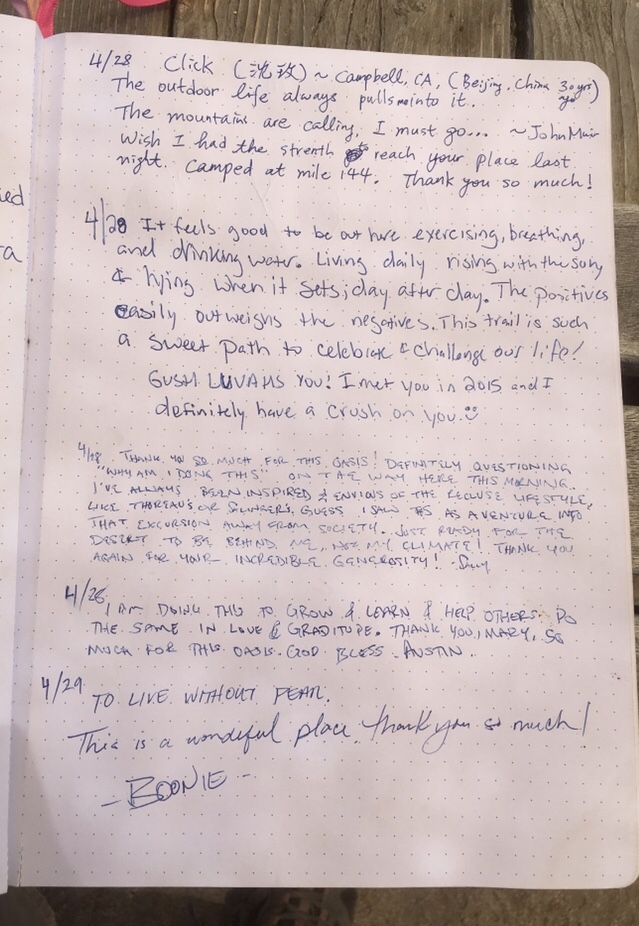 ed
a
4/28 Click (沈玫) ~ Campbell, CA, (Beijing, China 30 yrs ago)
The outdoor life always pulls me into it.
The mountains are calling, I must go... ~John Muir
Wish I had the strenth reach your place last
night. Camped at mile 144. Thank you so much!
4/28 It feels good to be out here exercising, breathing,
and drinking water. Living daily rising with the sun,
& lying when it sets; day after day. The positives
easily outweighs the negatives. This trail is such
a sweet path to celebrate & challenge our life!
GUSH LUVAHS YOU! I met you in 2015 and I
definitely have a crush on you.
4/28 THANK YOU SO MUCH FOR THIS OASIS! DEFINITELY QUESTIONING
"WHY AM I DOING THIS" ON THE WAY HERE THIS MORNING.
I'VE ALWAYS BEEN INSPIRED & ENVIOUS OF THE RECLUSE LIFESTYLE,
LIKE THOREAU'S OR SALINGER'S, GUESS I SAW THIS AS A VENTURE INTO
THAT EXCURSION AWAY FROM SOCIETY. JUST READY FOR THE
DESERT TO BE BEHIND ME, NOT MY CLIMATE! THANK YOU
AGAIN FOR YOUR INCREDIBLE GENEROSITY!
4/28 I AM DOING THIS TO GROW & LEARN & HELP OTHERS DO
THE SAME IN LOVE & GRADITUDE. THANK YOU, MARY, SO
MUCH FOR THIS OASIS. GOD BLESS. AUSTIN.
4/29 TO LIVE WITHOUT FEAR.
This is a wonderful place. thank you so much!
- BOONIE -